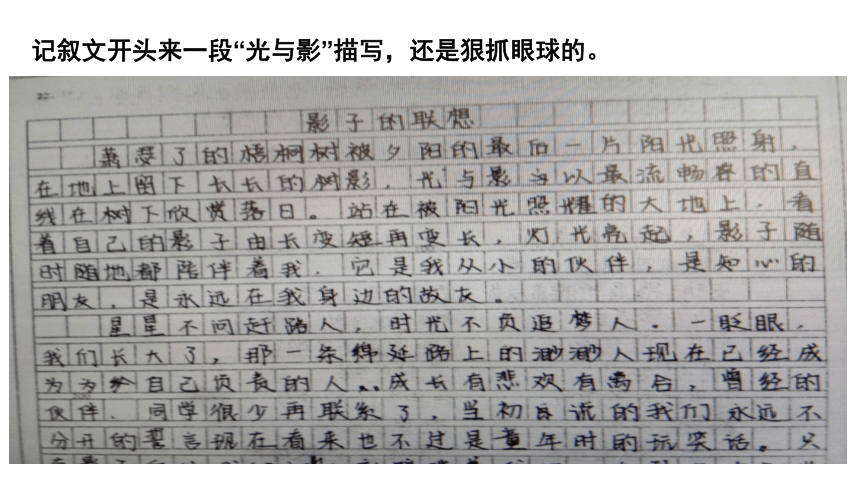 记叙文开头来一段“光与影”描写，还是狠抓眼球的。
22.
影子的联想
萧瑟了的梧桐树被夕阳的最后一片阳光照射，
在地上留下长长的树影，光与影以最流畅的直
线在树下欣赏落日。站在被阳光照耀的大地上，看
着自己的影子由长变短再变长，灯光亮起，影子随
时随地都陪伴着我，它是我从小的伙伴，是知心的
朋友，是永远在我身边的故友。
星星不问赶路人，时光不负追梦人。一眨眼，
我们长大了，那一条绵延路上的渺渺人现在已经成
为为自己负责的人，成长有悲欢有离合，曾经的
伙伴、同学很少再联系了，当初说的我们永远不
分开的誓言现在看来也不过是童年时的玩笑话。只